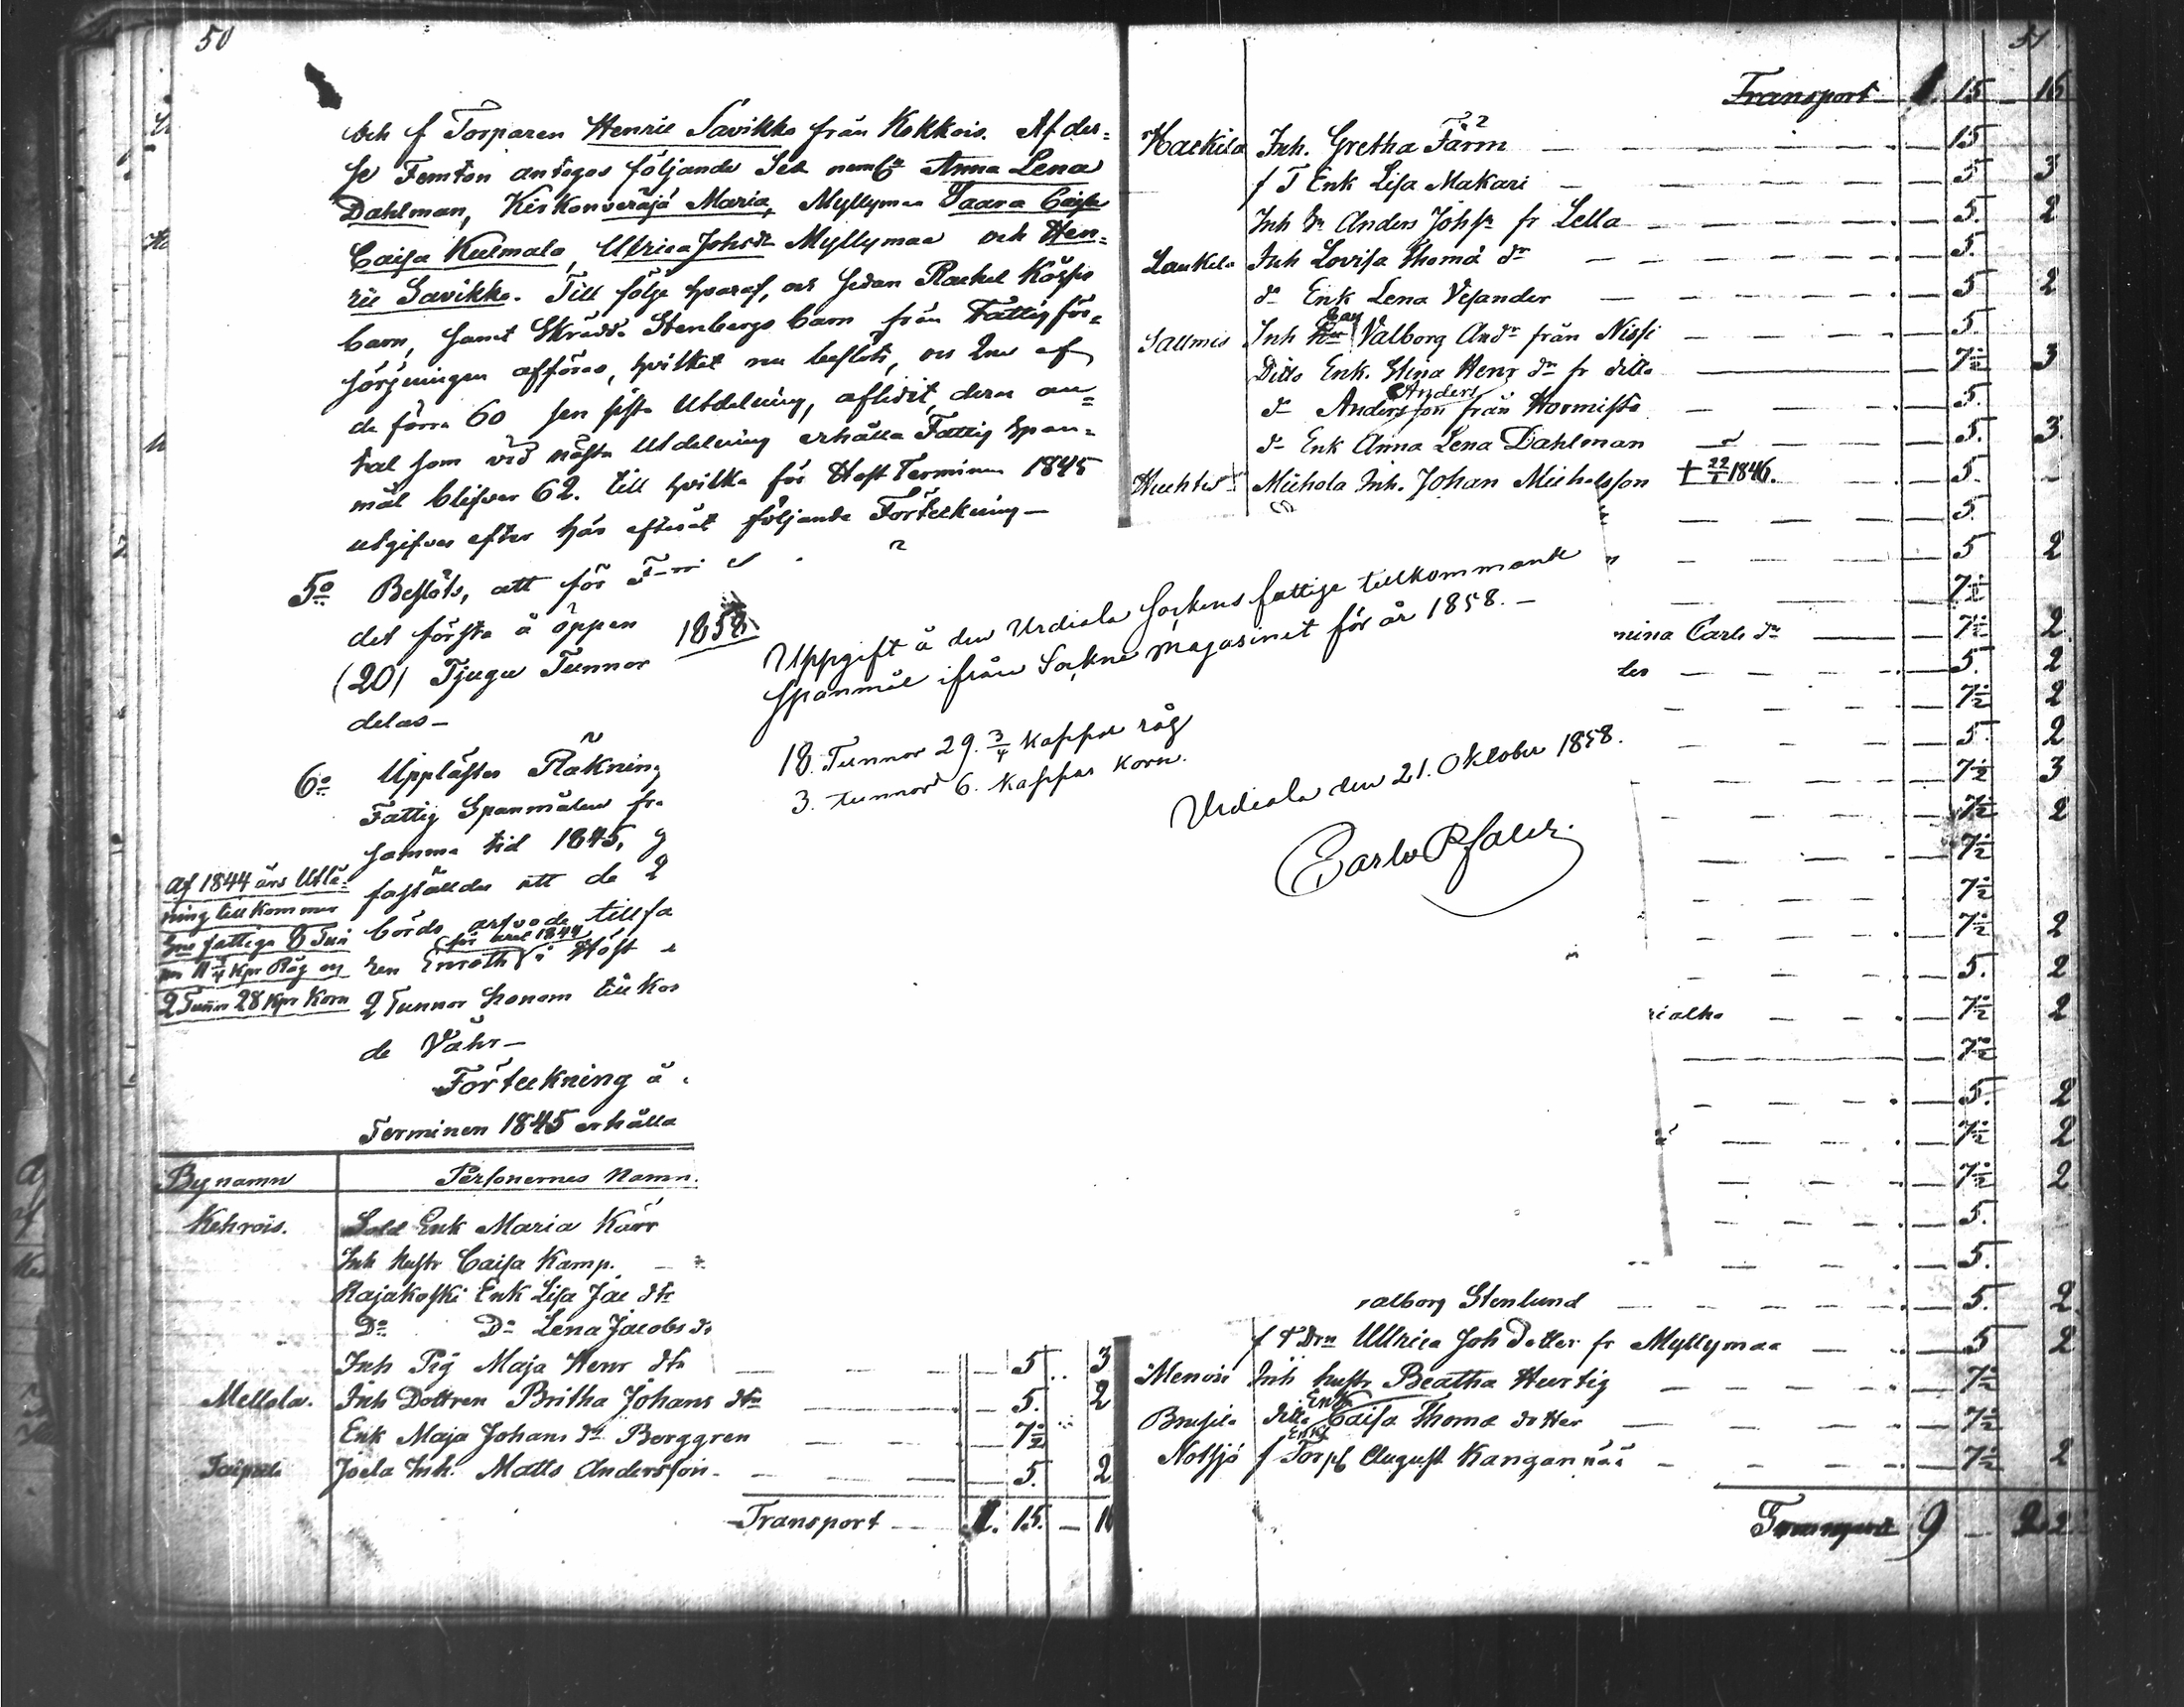 50
och f Torparen Henric Savikko från Kokkois. Af des=
se Femton antogos följande Sex neml Anna Lena
Dahlman, Kirkonveräjä Maria, Myllymaa Vaara Caisa
Caisa Kulmala, Ulrica Johsdr Myllymaa och Hen=
ric Savikko. Till följe hvaraf, och sedan Rachel
barn, samt Skrädd. Stenbergs barn från Fattigför=
sörjningen afföras, hvilket nu beslöts, och af
de förra 60 sen sista Utdelning, aflidit, deras an=
tal som vid nästa Utdelning erhålla Fattig Span=
mål blifver 62. till hvilka för Höst Terminen 1845
utgifves efter här efteråt följande Förteckning—
5o Beslöts, att för
det första å öppen
(20) Tjugu Tunnor
delas—
6o Upplästes Räknin
Fattig Spanmålen fr
samma tid 1845, g
faställdes att de 2
börds arfvode tillfa
för året 1844
ren Enroth i Höst
2 Tunnor honom tillkom
de Våhr—
Af 1844 års Utlå=
ning till kommer
Sns fattiga 8 Tun
nr 11 3/4 kpr Råg och
2 Tunnr 28 kpr Korn
Förteckning å
Terminen 1845 erhålla
Bynamn Personernes Namn.
Kehrois. Sold Enk Maria Kärr
Inh hustr Caisa Kamp.
Rajakoski Enk Lisa Jac dtr
Do Do Lena Jacobs d
Inh Pig Maja Henr dtr 5. 3
Mellola. Inh Dottren Britha Johans dtr 5. 2
Enk Maja Johans dr Berggren 7 1/2
Taipale Joela Inh. Matts Andersson 5. 2
Transport 1. 15. — 16
1858
Uppgift å den Urdiala Sockens fattige tillkommande
Spanmål ifrån Sockne Magasinet för år 1858.—
18. Tunnor 29. 3/4 kappar råg
3. tunnor 6. kappar korn.
Urdiala den 21. Oktober 1858.
51
Transport 1. 15 — 16
Hackila Inh. Gretha Färm 15
f T Enk Lisa Makari 5 3
Inh Dr Anders Johss fr Lella 5. 2
Laukela Inh Lovisa Thomæ dr 5.
do Enk Lena Vesander 5 2
Salmis Inh Valborg Andr från Nissi 5.
Ditto Enk. Stina Henr dr fr ditto 7 1/2 3
Anders
do Andersson från Hormisto 5.
do Enk Anna Lena Dahlman 5. 3
Huhtis Michola Inh. Johan Michelsson + 22/1 1846. 5. -
5.
5 2
7 1/2
nina Carls dr 7 1/2 2
5. 2
7 1/2 2
5. 2
7 1/2 3
7 1/2 2
7 1/2
7 1/2
7 1/2 2
5. 2
ialho 7 1/2 2
7 1/2
5. 2
7 1/2 2
7 1/2 2
5.
5.
alborg Stenlund 5. 2
f T Drn Ullrica Joh Dotter fr Myllymaa 5 2
Menois Inh hustr Beatha Hurtig 7 1/2
Enk
ditto Caisa Thomæ dotter 7 1/2
Enk
Notsjö f Torp August Kanganpää 7 1/2 2
Transport 9 — 2 2